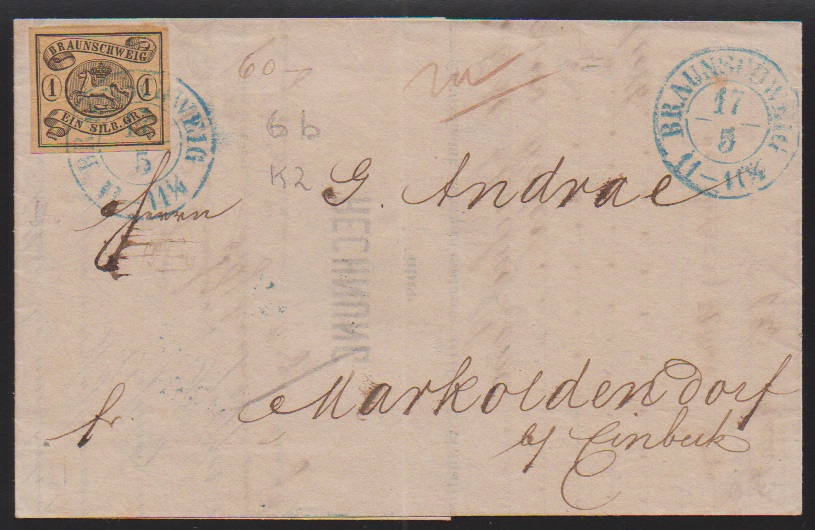 BRAUNSCHWEIG
1 1
EIN SILB. GR.
BRAUNSCHWEIG
17
5
11-11½
WEIG
5
60-
6b
K2
Herrn G. Andrae
RECHNUNG
fr Markoldendorf
b/ Einbeck